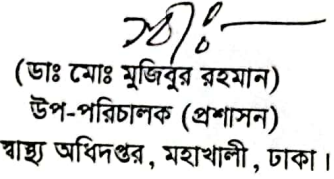 (ডাঃ মোঃ মুজিবুর রহমান)
উপ-পরিচালক (প্রশাসন)
স্বাস্থ্য অধিদপ্তর, মহাখালী, ঢাকা।